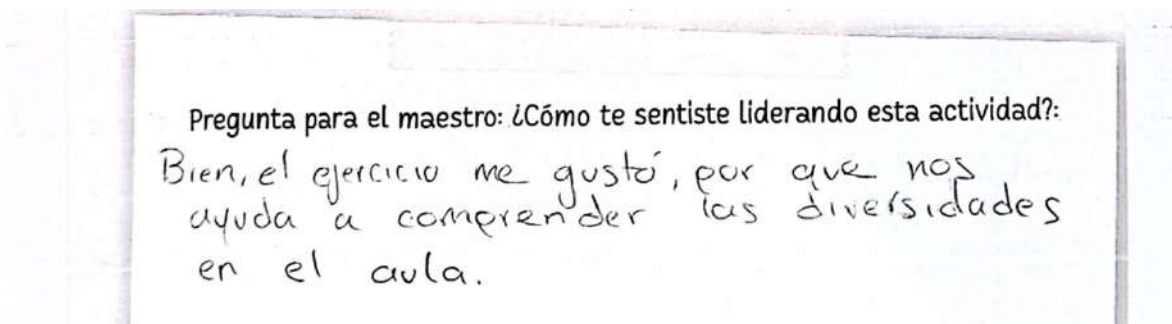 Pregunta para el maestro: ¿Cómo te sentiste liderando esta actividad?:
Bien, el ejercicio me gustó, por que nos
ayuda a comprender las diversidades
en el aula.